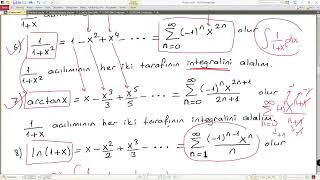 1+x
6) 1/(1+x²) = 1 - x² + x⁴ - ---- = ∑_{n=0}^{∞} (-1)ⁿ x²ⁿ olur ∫ 1/(1+x²) dx
1/(1+x²) açılımının her iki tarafının integralini alalım.
7) arctanx = x - x³/3 + x⁵/5 - --- = ∑_{n=0}^{∞} (-1)ⁿ x²ⁿ⁺¹/(2n+1) olur
1/(1+x) açılımının her iki tarafının integralini alalım.
8) ln(1+x) = x - x²/2 + x³/3 - --- = ∑_{n=1}^{∞} (-1)ⁿ⁻¹ xⁿ/n olur